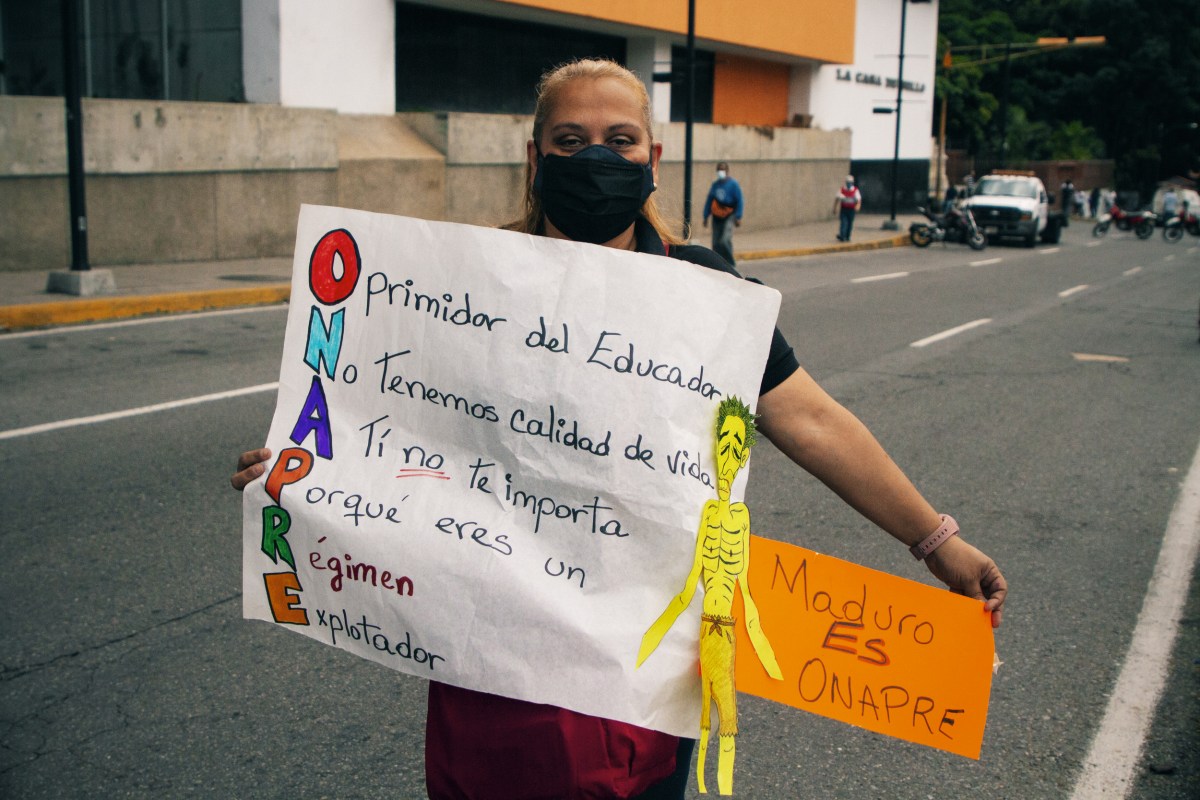 LA CASA
Oprimidor del Educador
No Tenemos calidad de vida
A Tí no te importa
Porqué eres un
Régimen
Explotador
Maduro
Es
ONAPRE